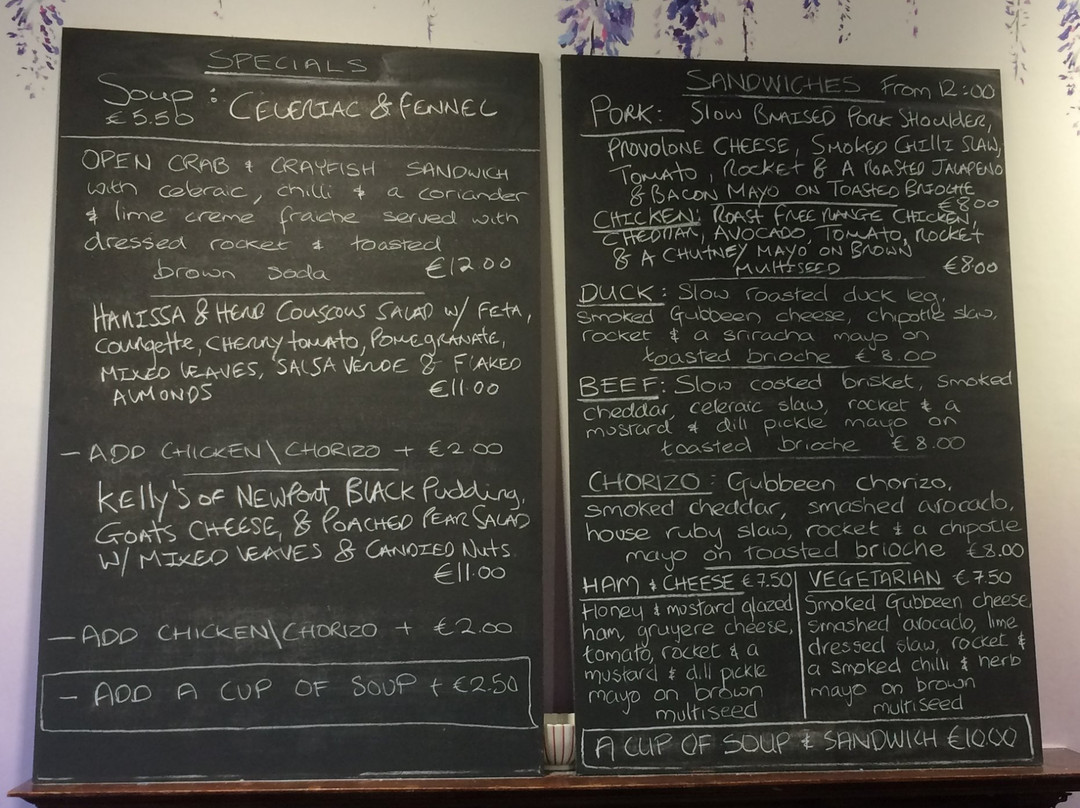 SPECIALS
Soup : CELERIAC & FENNEL
€5.50
OPEN CRAB & CRAYFISH SANDWICH
with celeraic, chilli & a coriander
& lime creme fraiche served with
dressed rocket & toasted
brown soda €12.00
HARISSA & HERB COUSCOUS SALAD W/ FETA,
COURGETTE, CHERRY TOMATO, POMEGRANATE,
MIXED LEAVES, SALSA VERDE & FLAKED
ALMONDS €11.00
- ADD CHICKEN\CHORIZO + €2.00
KELLY'S OF NEWPORT BLACK PUDDING,
GOATS CHEESE, & POACHED PEAR SALAD
W/ MIXED LEAVES & CANDIED NUTS.
€11.00
- ADD CHICKEN\CHORIZO + €2.00
- ADD A CUP OF SOUP + €2.50
SANDWICHES From 12:00
PORK: SLOW BRAISED PORK SHOULDER,
PROVOLONE CHEESE, SMOKED CHILLI SLAW,
TOMATO, ROCKET & A ROASTED JALAPENO
& BACON MAYO ON TOASTED BRIOCHE
€8.00
CHICKEN: ROAST FREE RANGE CHICKEN,
CHEDDAR, AVOCADO, TOMATO, ROCKET
& A CHUTNEY MAYO ON BROWN
MULTISEED €8.00
DUCK: Slow roasted duck leg,
smoked Gubbeen cheese, chipotle slaw,
rocket & a sriracha mayo on
toasted brioche €8.00
BEEF: Slow cooked brisket, smoked
cheddar, celeraic slaw, rocket & a
mustard & dill pickle mayo on
toasted brioche €8.00
CHORIZO: Gubbeen chorizo,
smoked cheddar, smashed avocado,
house ruby slaw, rocket & a chipotle
mayo on toasted brioche €8.00
HAM & CHEESE €7.50
Honey & mustard glazed
ham, gruyere cheese,
tomato, rocket & a
mustard & dill pickle
mayo on brown
multiseed
VEGETARIAN €7.50
Smoked Gubbeen cheese,
smashed avocado, lime
dressed slaw, rocket &
a smoked chilli & herb
mayo on brown
multiseed
A CUP OF SOUP & SANDWICH €10.00